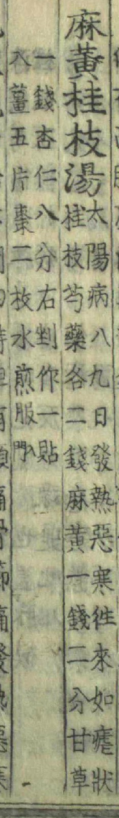 麻黃桂枝湯
太陽病八九日發熱惡寒往來如瘧狀
桂枝芍藥各二錢麻黃一錢二分甘草
一錢杏仁八分右剉作一貼
入薑五片棗二枚水煎服入門